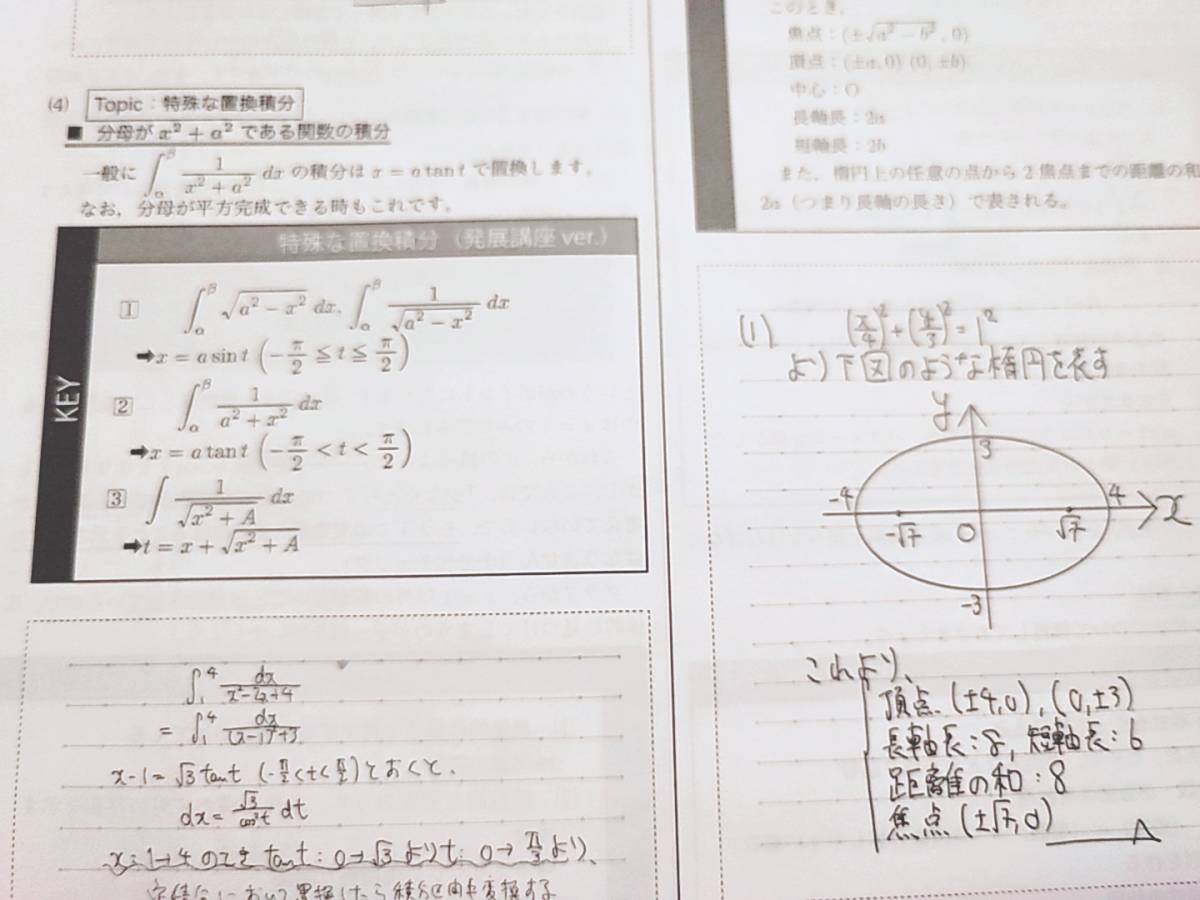 (4) Topic：特殊な置換積分
■ 分母が x² + a² である関数の積分
一般に ∫_α^β 1/(x² + a²) dx の積分は x = a tan t で置換します。
なお、分母が平方完成できる時もこれです。
特殊な置換積分（発展講座 ver.）
KEY
1 ∫_α^β √(a² − x²) dx, ∫_α^β 1/√(a² − x²) dx
➡x = a sin t (−π/2 ≦ t ≦ π/2)
2 ∫_α^β 1/(a² + x²) dx
➡x = a tan t (−π/2 < t < π/2)
3 ∫ 1/√(x² + A) dx
➡t = x + √(x² + A)
∫_1^4 dx/(x²−2x+4)
= ∫_1^4 dx/((x−1)²+3)
x−1 = √3 tan t (−π/2 < t < π/2) とおくと、
dx = √3/cos²t dt
x: 1→4 のとき tan t : 0→√3 より t: 0→π/3 より、
このとき,
焦点：(±√(a² − b²), 0)
頂点：(±a, 0) (0, ±b)
中心：O
長軸長：2a
短軸長：2b
また，楕円上の任意の点から 2 焦点までの距離の和
2a（つまり長軸の長さ）で表される。
(1) (x/4)² + (y/3)² = 1²
より下図のような楕円を表す
y
3
-4
4
x
-√7
O
√7
-3
これより、
頂点 (±4, 0), (0, ±3)
長軸長：8, 短軸長：6
距離の和：8
焦点 (±√7, 0)